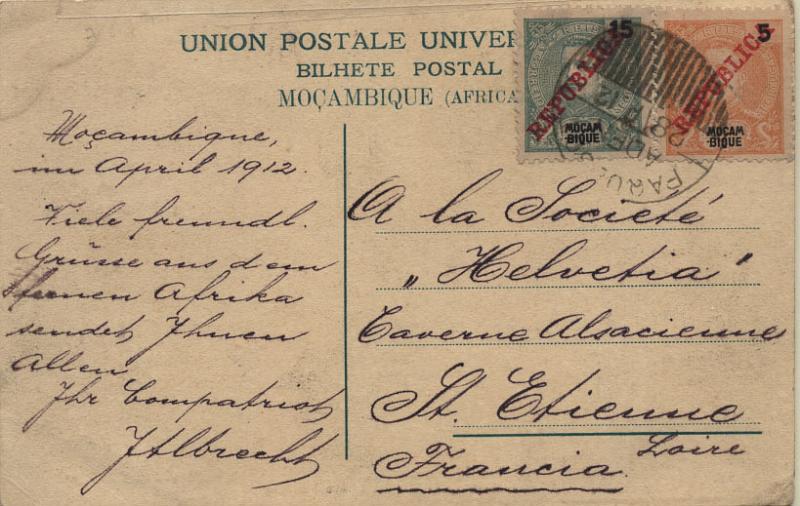 UNION POSTALE UNIVER
BILHETE POSTAL
MOÇAMBIQUE (AFRICA
15
REPUBLICA
MOÇAM
BIQUE
5
REPUBLICA
MOÇAM
BIQUE
PAQU
28
12
Moçambique,
im April 1912.
Viele freundl.
Grüsse aus dem
fernen Afrika
sendet Ihnen
Allen
Ihr Compatriot
JAlbrecht
A la Societé
„Helvetia"
Taverne Alsacienne
St. Etienne
Loire
Francia.